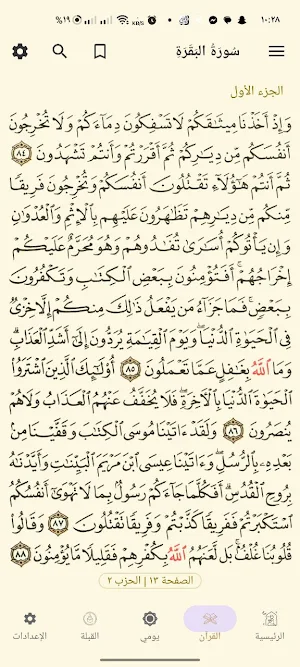 ١٠:٢٨
%١٩
KB/S
سُورَةُ البَقَرَةِ
الجزء الأول
وَإِذْ أَخَذْنَا مِيثَٰقَكُمْ لَا تَسْفِكُونَ دِمَآءَكُمْ وَلَا تُخْرِجُونَ
أَنفُسَكُم مِّن دِيَٰرِكُمْ ثُمَّ أَقْرَرْتُمْ وَأَنتُمْ تَشْهَدُونَ ٨٤
ثُمَّ أَنتُمْ هَٰٓؤُلَآءِ تَقْتُلُونَ أَنفُسَكُمْ وَتُخْرِجُونَ فَرِيقًا
مِّنكُم مِّن دِيَٰرِهِمْ تَظَٰهَرُونَ عَلَيْهِم بِٱلْإِثْمِ وَٱلْعُدْوَٰنِ
وَإِن يَأْتُوكُمْ أُسَٰرَىٰ تُفَٰدُوهُمْ وَهُوَ مُحَرَّمٌ عَلَيْكُمْ
إِخْرَاجُهُمْ ۚ أَفَتُؤْمِنُونَ بِبَعْضِ ٱلْكِتَٰبِ وَتَكْفُرُونَ
بِبَعْضٍ ۚ فَمَا جَزَآءُ مَن يَفْعَلُ ذَٰلِكَ مِنكُمْ إِلَّا خِزْىٌ
فِى ٱلْحَيَوٰةِ ٱلدُّنْيَا ۖ وَيَوْمَ ٱلْقِيَٰمَةِ يُرَدُّونَ إِلَىٰٓ أَشَدِّ ٱلْعَذَابِ ۗ
وَمَا ٱللَّهُ بِغَٰفِلٍ عَمَّا تَعْمَلُونَ ٨٥ أُو۟لَٰٓئِكَ ٱلَّذِينَ ٱشْتَرَوُا۟
ٱلْحَيَوٰةَ ٱلدُّنْيَا بِٱلْءَاخِرَةِ ۖ فَلَا يُخَفَّفُ عَنْهُمُ ٱلْعَذَابُ وَلَا هُمْ
يُنصَرُونَ ٨٦ وَلَقَدْ ءَاتَيْنَا مُوسَى ٱلْكِتَٰبَ وَقَفَّيْنَا مِنۢ
بَعْدِهِۦ بِٱلرُّسُلِ ۖ وَءَاتَيْنَا عِيسَى ٱبْنَ مَرْيَمَ ٱلْبَيِّنَٰتِ وَأَيَّدْنَٰهُ
بِرُوحِ ٱلْقُدُسِ ۗ أَفَكُلَّمَا جَآءَكُمْ رَسُولٌۢ بِمَا لَا تَهْوَىٰٓ أَنفُسُكُمُ
ٱسْتَكْبَرْتُمْ فَفَرِيقًا كَذَّبْتُمْ وَفَرِيقًا تَقْتُلُونَ ٨٧ وَقَالُوا۟
قُلُوبُنَا غُلْفٌۢ ۚ بَل لَّعَنَهُمُ ٱللَّهُ بِكُفْرِهِمْ فَقَلِيلًا مَّا يُؤْمِنُونَ ٨٨
الصفحة ١٣ | الحزب ٢
الرئيسية
القرآن
يومي
القبلة
الإعدادات